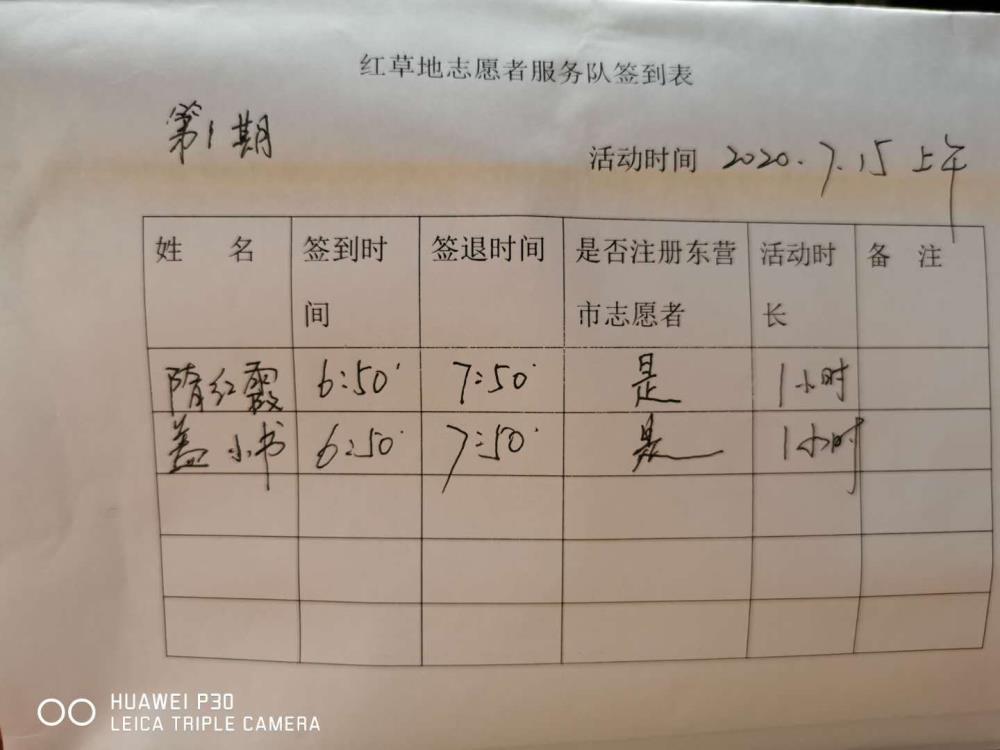 红草地志愿者服务队签到表
第1期
活动时间 2020.7.15 上午
姓 名 签到时间 签退时间 是否注册东营市志愿者 活动时长 备 注
隋红霞 6:50 7:50 是 1小时
盖小书 6:50 7:50 是 1小时
HUAWEI P30
LEICA TRIPLE CAMERA